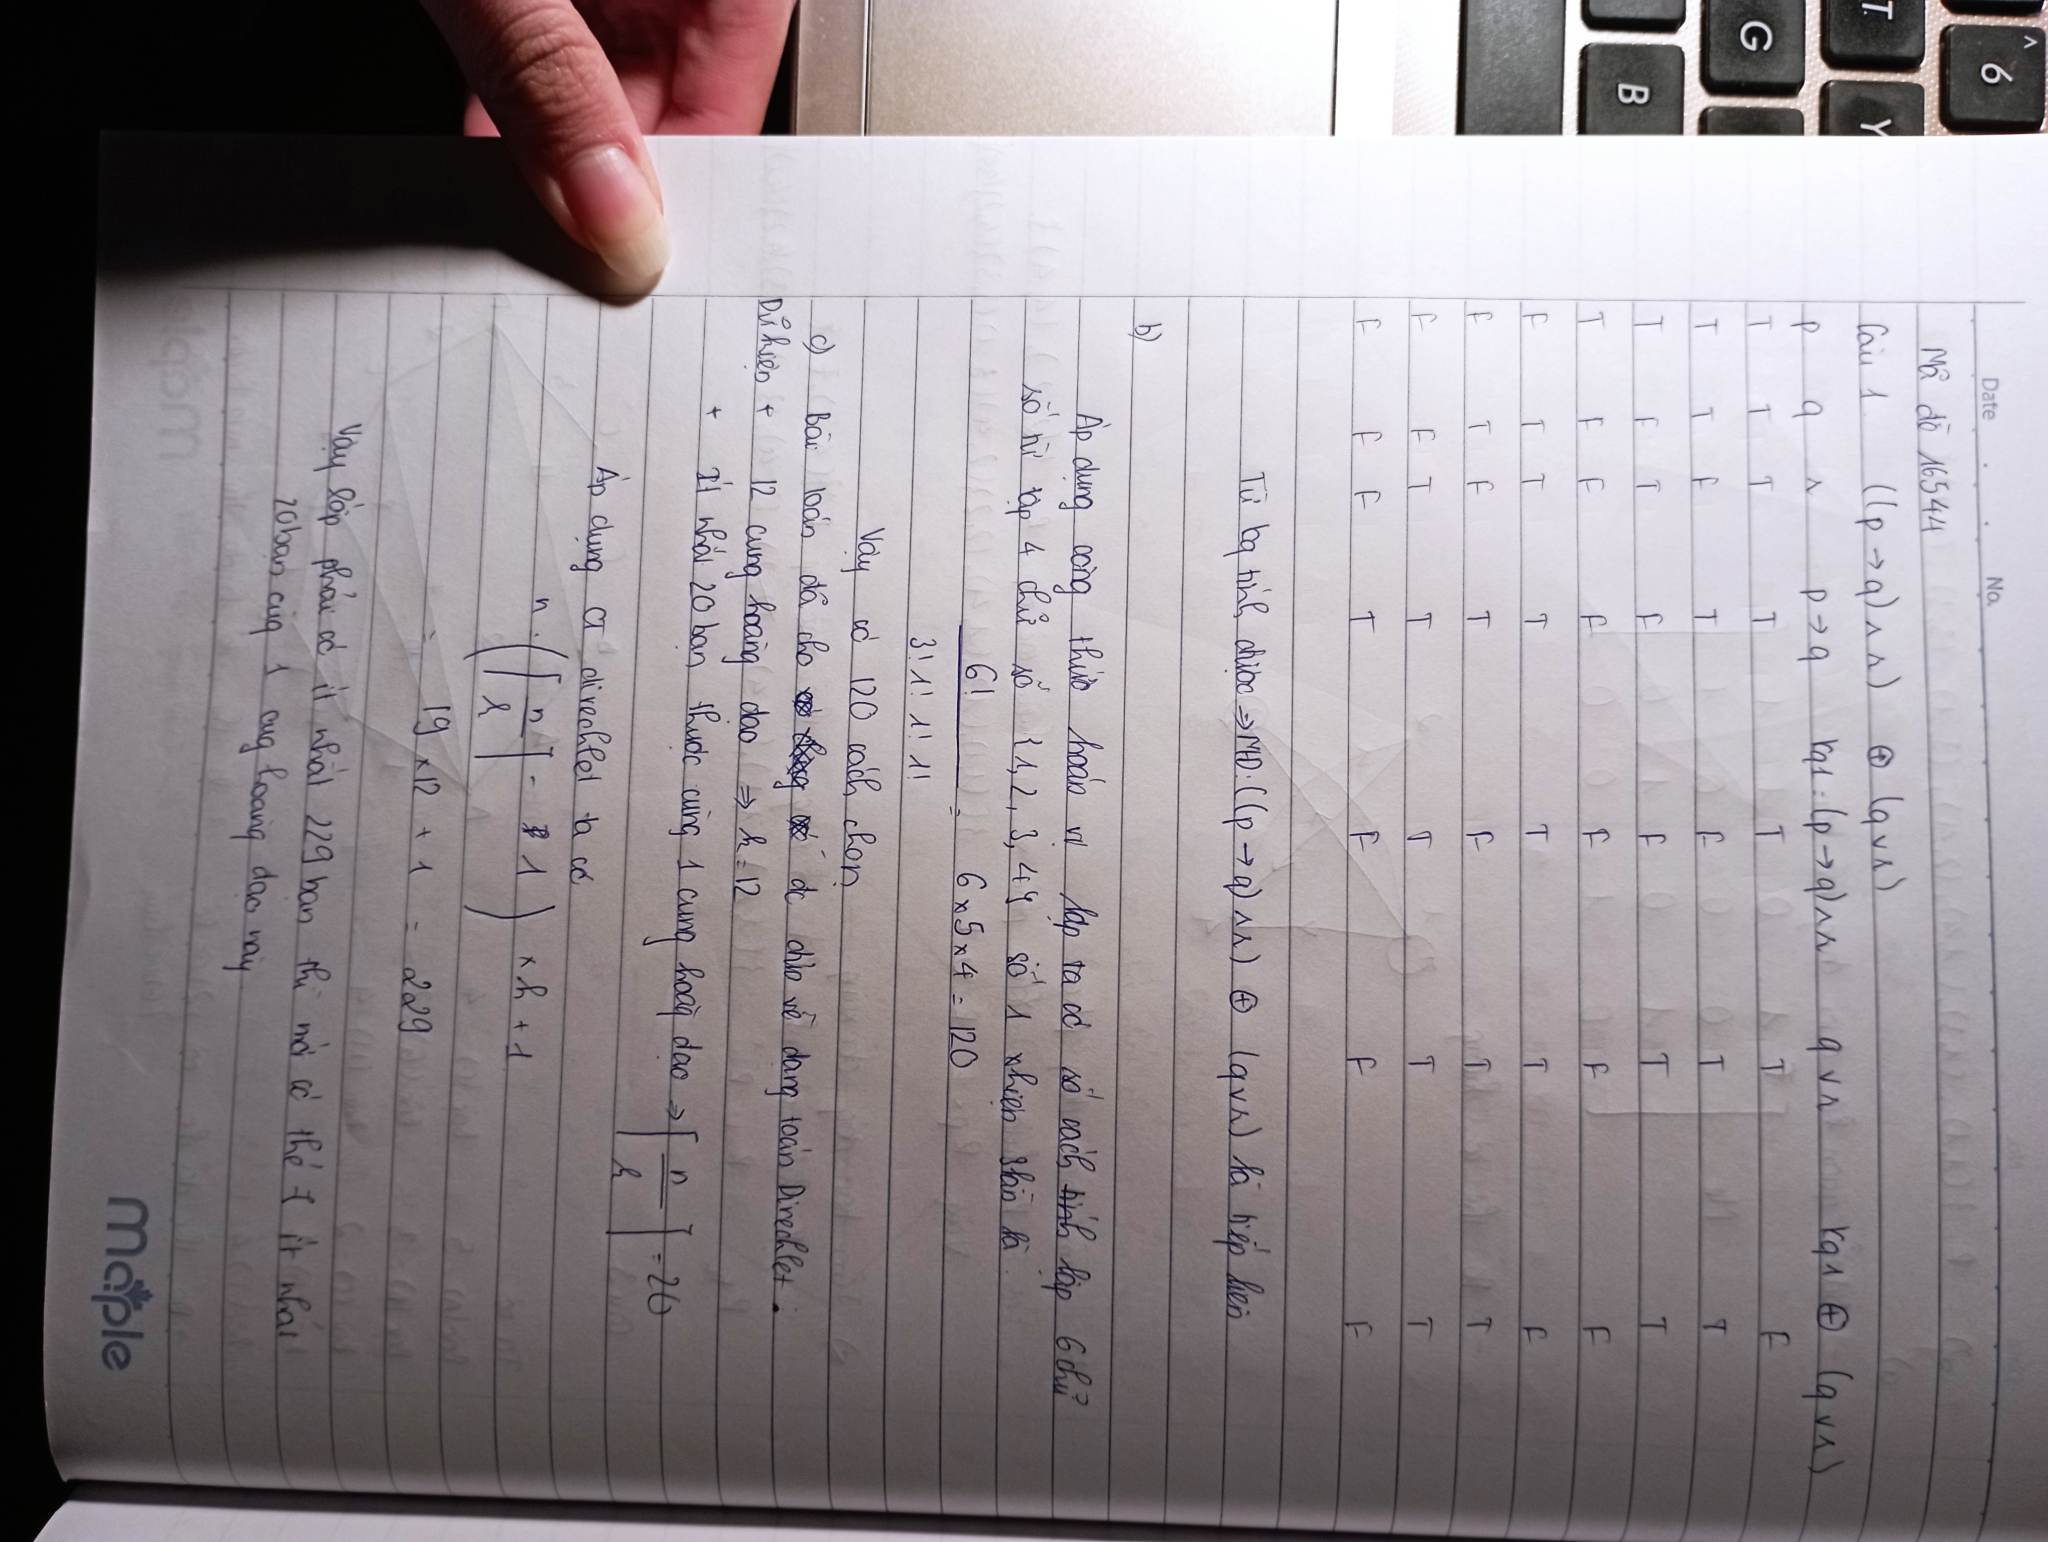 ^
6
T
Y
G
B
Date . . No.
Mã đề 16544
Câu 1 ((p → q) ∧ r) ⊕ (q ∨ r)
p q r p → q kq1: (p → q) ∧ r q ∨ r kq1 ⊕ (q ∨ r)
T T T T T T F
T T F T F T T
T F T F F T T
T F F F F F F
F T T T T T F
F T F T F T T
F F T T T T T
F F F T F F F
Từ bảng tính được ⇒ MĐ: ((p → q) ∧ r) ⊕ (q ∨ r) là tiếp liên
b)
Áp dụng công thức hoán vị lặp ta có số cách tính lập 6 chữ
số từ tập 4 chữ số {1, 2, 3, 4} số 1 xhiện 3lần là
6! / 3! 1! 1! 1! = 6 x 5 x 4 = 120
Vậy có 120 cách chọn
c) Bài toán đã cho đc đưa về dạng toán Direchlet.
Dữ kiện + 12 cung hoàng đạo ⇒ k = 12
+ Ít nhất 20 bạn thuộc cùng 1 cung hoàng đạo ⇒ ⌈n/k⌉ = 20
Áp dụng CT direchlet ta có
n = (⌈n/k⌉ - 1) x k + 1
= 19 x 12 + 1 = 229
Vậy lớp phải có ít nhất 229 bạn thì mới có thể ít nhất
20 bạn cùng 1 cung hoàng đạo này
Maple